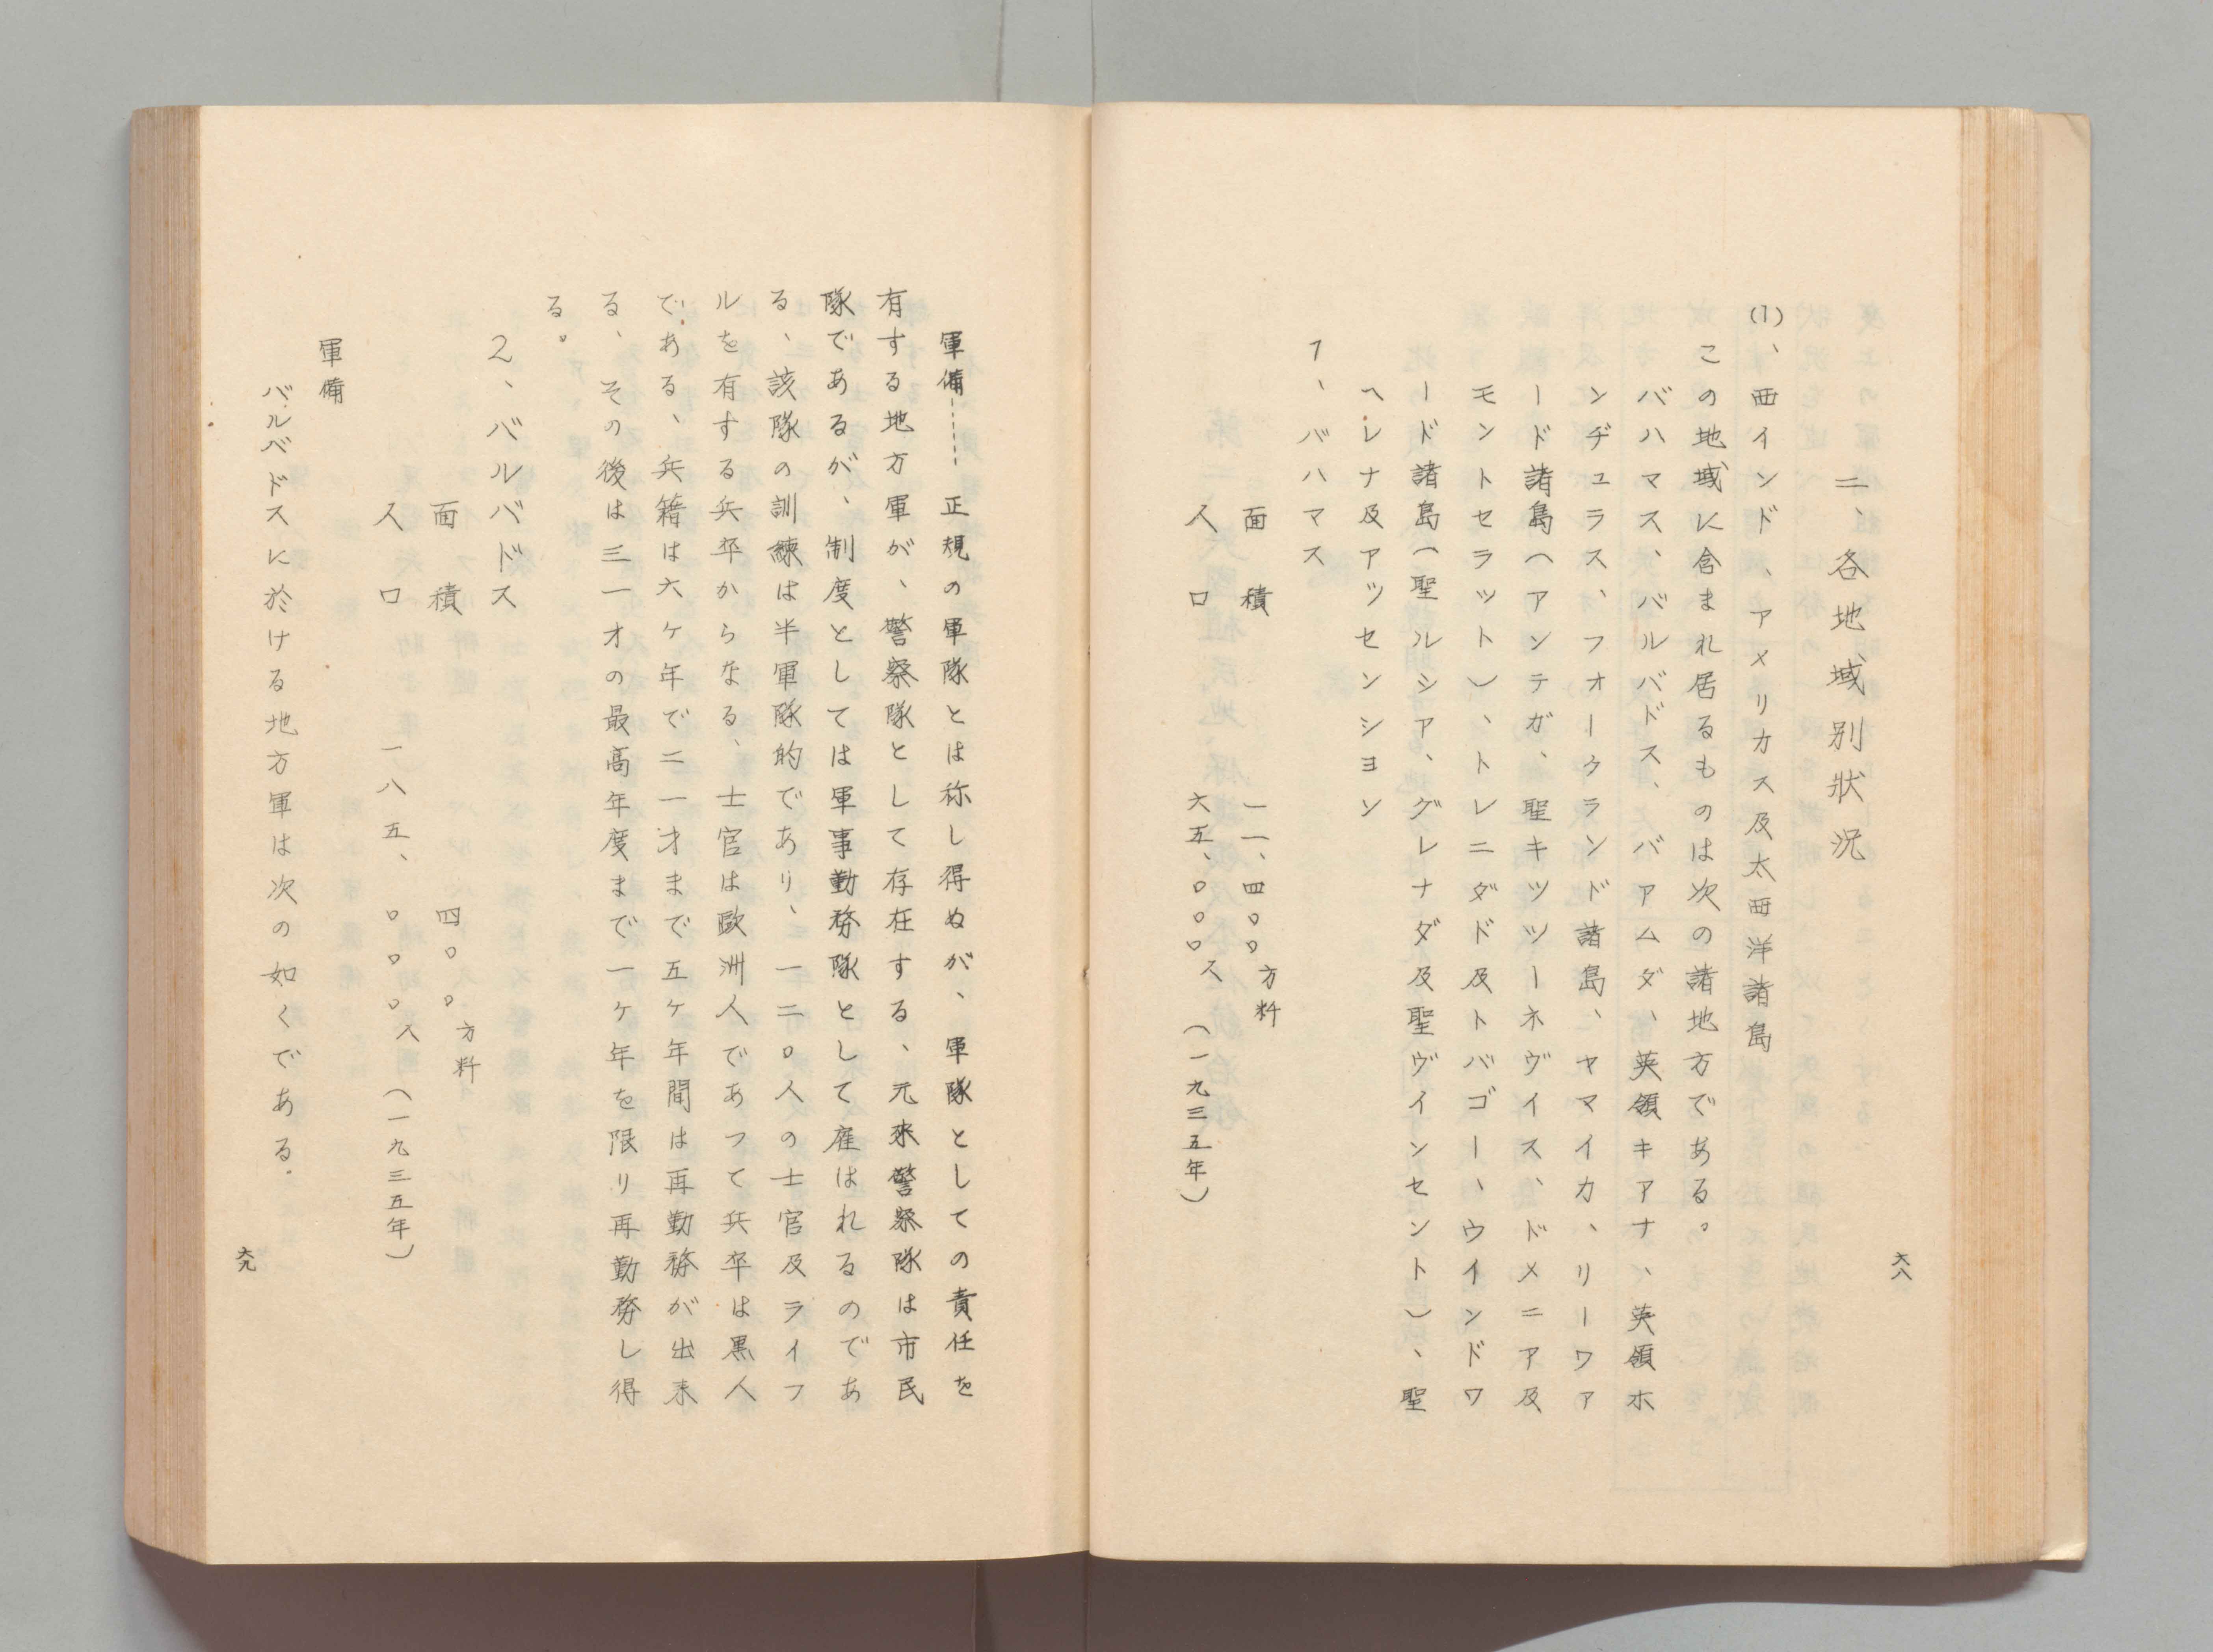 二、各地域別狀況
(1)、西インド、アメリカス及太西洋諸島
この地域に含まれ居るものは次の諸地方である。
バハマス、バルバドス、バアムダ、英領キアナ、英領ホ
ンヂュラス、フオークランド諸島、ヤマイカ、リーワア
ード諸島（アンテガ、聖キツツーネヴイス、ドメニア及
モントセラツト）、トレニダド及トバゴー、ウインドワ
ード諸島（聖ルシア、グレナダ及聖ヴインセント）、聖
ヘレナ及アツセンシヨン
1、バハマス
面積 一一、四〇〇方粁
人口 六五、〇〇〇人（一九三五年）
六八
軍備……正規の軍隊とは称し得ぬが、軍隊としての責任を
有する地方軍が、警察隊として存在する、元來警察隊は市民
隊であるが、制度としては軍事勤務隊として雇はれるのであ
る、該隊の訓練は半軍隊的であり、一二〇人の士官及ライフ
ルを有する兵卒からなる、士官は歐洲人であつて兵卒は黒人
である、兵籍は六ヶ年で二一才まで五ヶ年間は再勤務が出来
る、その後は三一才の最高年度まで一ヶ年を限り再勤務し得
る。
2、バルバドス
面積 四〇〇方粁
人口 一八五、〇〇〇人（一九三五年）
軍備
バルベドスに於ける地方軍は次の如くである．
六九